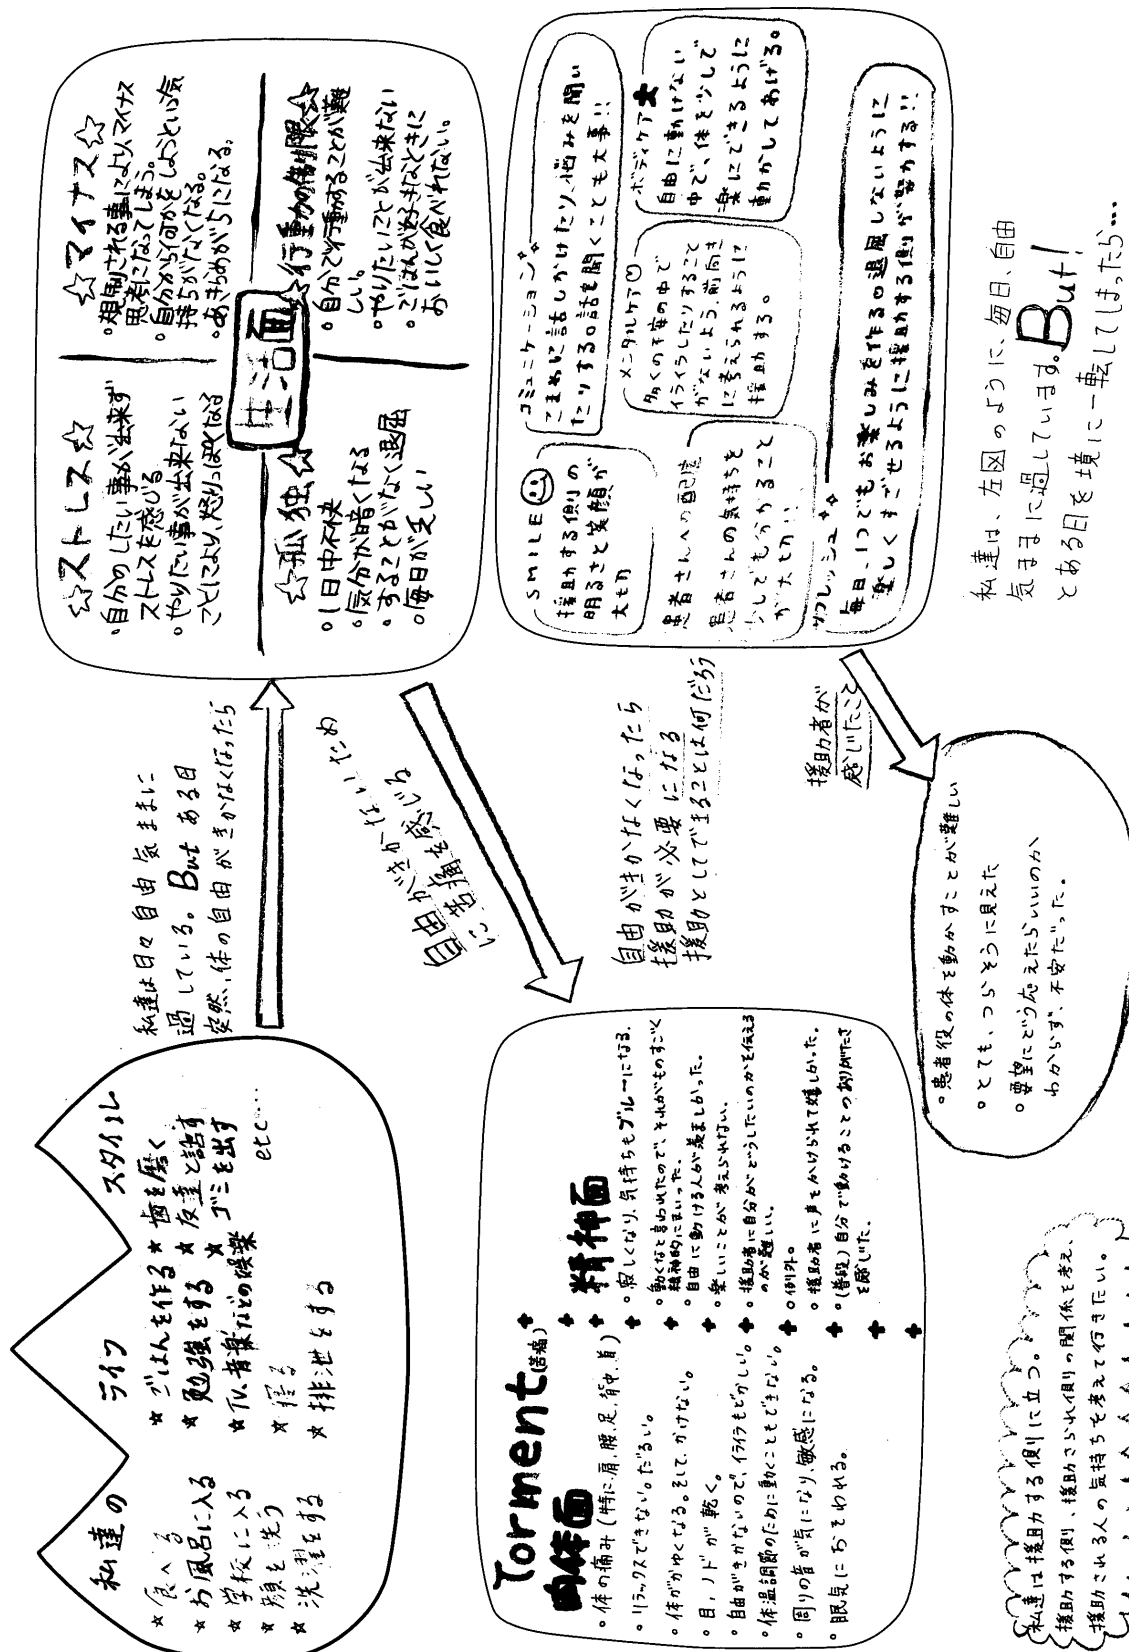 私達の ライフ スタイル
★ 食べる
★ お風呂に入る
★ 学校に入る
★ 顔を洗う
★ 洗濯をする
★ ごはんを作る
★ 勉強をする
★ TV、音楽などの娯楽
★ 寝る
★ 排泄をする
★ 歯を磨く
★ 友達と話す
★ ゴミを出す
etc…
私達は日々自由気ままに
過している。But ある日
突然、体の自由がきかなくなったら
☆ストレス☆
・自分のしたい事が出来ず
ストレスを感じる
・やりたい事が出来ない
ことにより、怒りっぽくなる
☆マイナス☆
・規制される事によりマイナス
思考になってしまう。
・自分から何かをしようという気
持ちがなくなる。
・あきらめがちになる。
生活面
☆孤独☆
・1日中不快
・気分が暗くなる
・することがなく退屈
・毎日が乏しい
☆行動の制限☆
・自分で行動することが難
しい。
・やりたいことが出来ない
・ごはんが好きなときに
おいしく食べれない。
自由がきかないため
に苦痛を感じる
Torment(苦痛)
肉体面
・体の痛み(特に肩、腰、足、背中、首)
・リラックスできない。だるい。
・体がかゆくなる。そして、かけない。
・目、ノドが乾く。
・自由がきかないので、イライラもどかしい。
・体温調節のために動くこともできない。
・周りの音が気になり、敏感になる。
・眠気におそわれる。
精神面
・寂しくなり、気持ちもブルーになる。
・動くなと言われたので、それがものすごく
精神的にまいった。
・自由に動ける人が羨ましかった。
・楽しいことが考えられない。
・援助者に自分がどうしたいのかを伝える
のが難しい。
・例外。
・援助者に声をかけられて嬉しかった。
・(普段)自分で動けることのありがたさ
を感じた。
自由がきかなくなったら
援助が必要になる
援助としてできることは何だろう
SMILE
援助する側の
明るさと笑顔が
大切
コミュニケーション
こまめに話しかけたり、悩みを聞い
たりする。話を聞くことも大事!!
患者さんへの配慮
患者さんの気持ちを
少しでも分かること
が大切!!
メンタルケア
多くの不安の中で
イライラしたりすること
がないよう、前向き
に考えられるように
援助する。
ボディケア★
自由に動けない
中で、体を少しで
も楽にできるように
動かしてあげる。
リフレッシュ
毎日、1つでもお楽しみを作る。退屈しないように
楽しくすごせるように援助する側が努力する!!
援助者が
感じたこと
・患者役の体を動かすことが難しい
・とても、つらそうに見えた
・要望にどう応えたらいいのか
わからず、不安だった。
私達は、左図のように、毎日、自由
気ままに過しています。But!
とある日を境に一転してしまったら…
私達は援助する側に立つ。
援助する側、援助される側の関係を考え、
援助される人の気持ちを考えて行きたい。